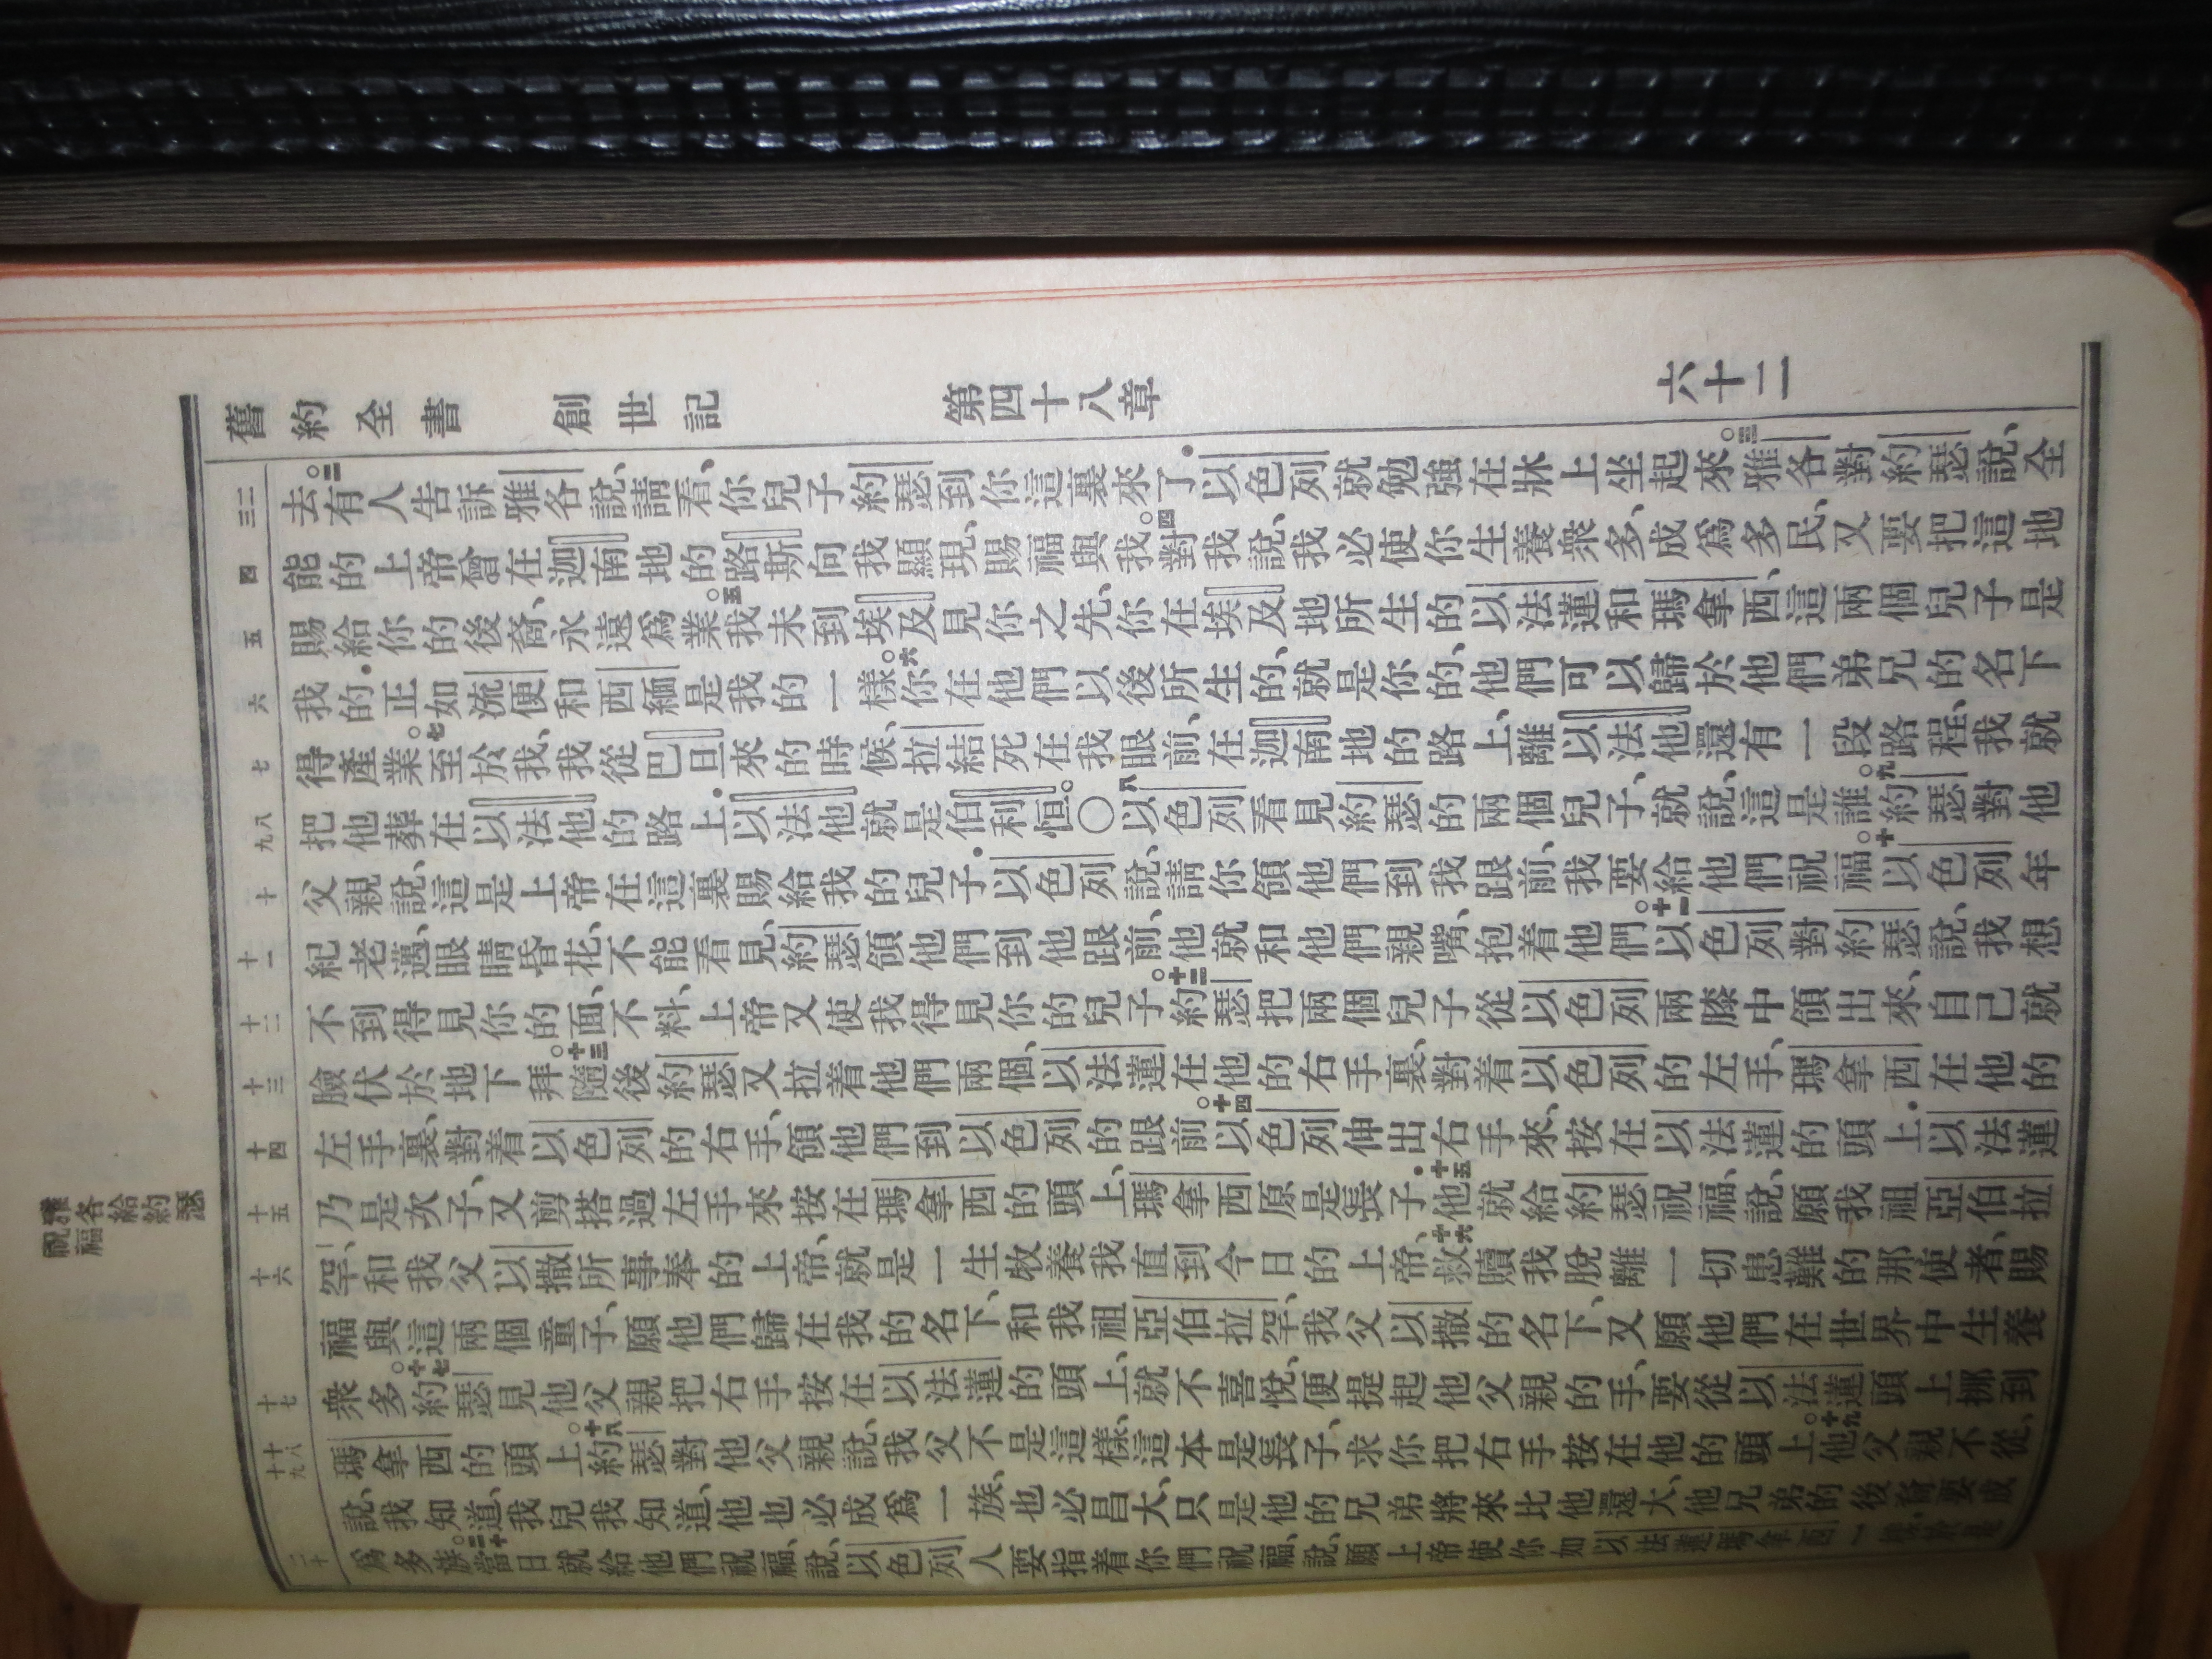 舊約全書 創世記 第四十八章 六十二
去。二有人告訴雅各說、請看、你兒子約瑟到你這裏來了．以色列就勉強在牀上坐起來。三雅各對約瑟說、全
能的上帝曾在迦南地的路斯向我顯現、賜福與我。四對我說、我必使你生養衆多、成爲多民、又要把這地
賜給你的後裔、永遠爲業。五我未到埃及見你之先、你在埃及地所生的以法蓮和瑪拿西、這兩個兒子是
我的．正如流便和西緬是我的一樣。六你在他們以後所生的、就是你的、他們可以歸於他們弟兄的名下
得產業。七至於我、我從巴旦來的時候、拉結死在我眼前、在迦南地的路上、離以法他還有一段路程、我就
把他葬在以法他的路上．以法他就是伯利恒。○八以色列看見約瑟的兩個兒子、就說、這是誰。九約瑟對他
父親說、這是上帝在這裏賜給我的兒子．以色列說、請你領他們到我跟前、我要給他們祝福。十以色列年
紀老邁、眼睛昏花、不能看見、約瑟領他們到他跟前、他就和他們親嘴、抱着他們。十一以色列對約瑟說、我想
不到得見你的面、不料、上帝又使我得見你的兒子。十二約瑟把兩個兒子從以色列兩膝中領出來、自己就
臉伏於地下拜。十三隨後約瑟又拉着他們兩個、以法蓮在他的右手裏、對着以色列的左手、瑪拿西在他的
左手裏、對着以色列的右手、領他們到以色列的跟前。十四以色列伸出右手來、按在以法蓮的頭上．以法蓮
乃是次子、又剪搭過左手來、按在瑪拿西的頭上、瑪拿西原是長子．十五他就給約瑟祝福、說、願我祖亞伯拉
罕、和我父以撒所事奉的上帝、就是一生牧養我直到今日的上帝、十六救贖我脫離一切患難的那使者、賜
福與這兩個童子、願他們歸在我的名下、和我祖亞伯拉罕、我父以撒的名下、又願他們在世界中生養
衆多。十七約瑟見他父親把右手按在以法蓮的頭上、就不喜悅、便提起他父親的手、要從以法蓮頭上挪到
瑪拿西的頭上。十八約瑟對他父親說、我父不是這樣、這本是長子、求你把右手按在他的頭上。十九他父親不從、
說、我知道、我兒、我知道、他也必成爲一族、也必昌大、只是他的兄弟將來比他還大、他兄弟的後裔要成
爲多族。二十當日就給他們祝福、說、以色列人要指着你們祝福、說、願上帝使你如以法蓮瑪拿西一
三二
四
五
六
七
九八
十
十一
十二
十三
十四
十五
十六
十七
十九十八
二十
雅各給約瑟
祝福